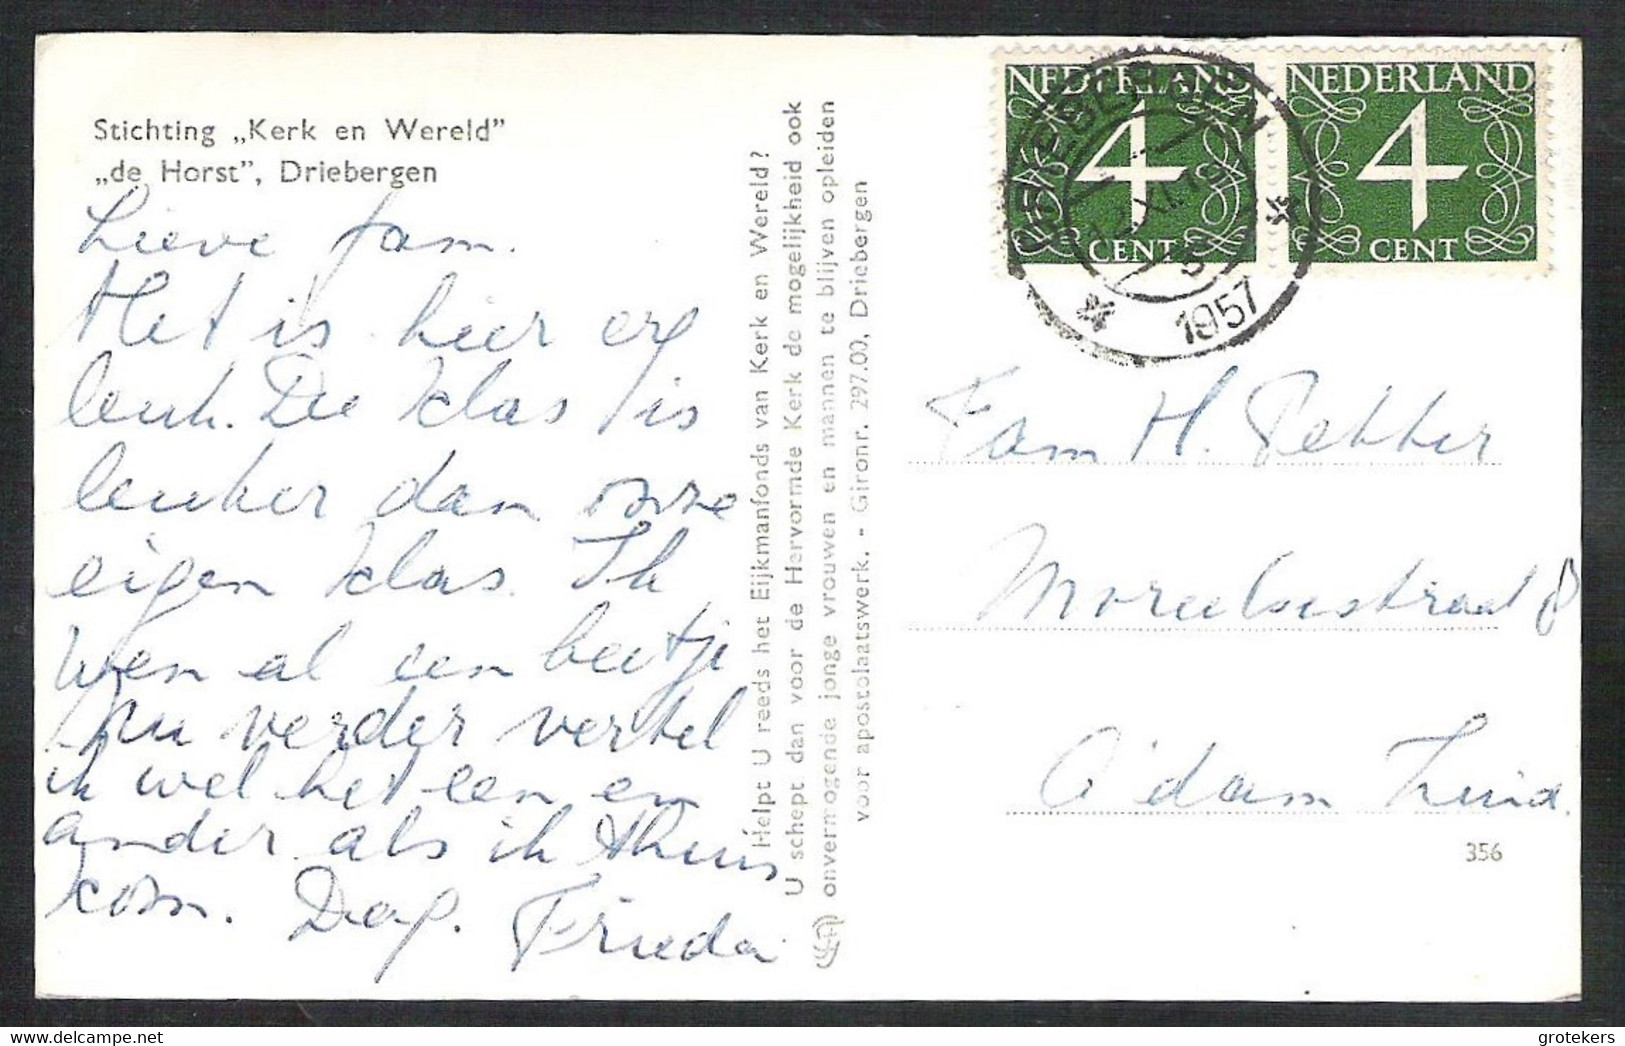 Stichting „Kerk en Wereld”
„de Horst”, Driebergen
Lieve fam.
Het is hier erg
leuk. De klas is
leuker dan onze
eigen klas. Ik
wen al een beetje
nu verder vertel
ik wel het een en
ander als ik thuis
kom. Dag. Frieda
Helpt U reeds het Eijkmanfonds van Kerk en Wereld?
U schept dan voor de Hervormde Kerk de mogelijkheid ook
onvermogende jonge vrouwen en mannen te blijven opleiden
voor apostolaatswerk. - Gironr. 297.00, Driebergen
NEDERLAND
4
CENT
NEDERLAND
4
CENT
DRIEBERGEN
1957
Fam H. Bekker
Moreelsestraat 8
A'dam Zuid.
356
grotekers © www.delcampe.net